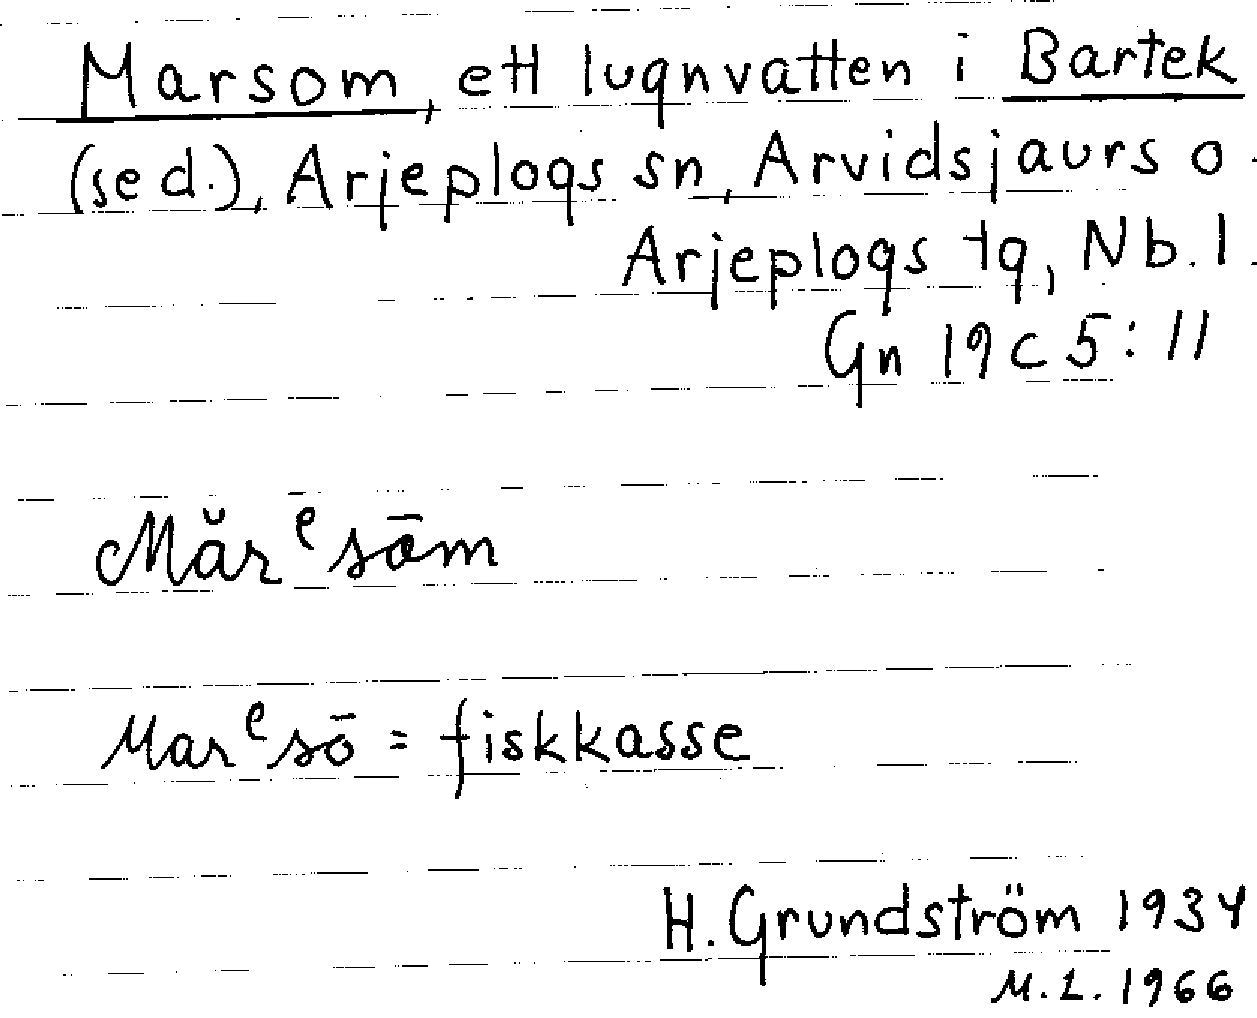 Marsom, ett lugnvatten i Bartek
(se d.), Arjeplogs sn, Arvidsjaurs o.
Arjeplogs tg, Nb. l.
Gn 19 c 5: 11
Mărᵉsōm
Marᵉsō = fiskkasse
H. Grundström 1934
M.L. 1966